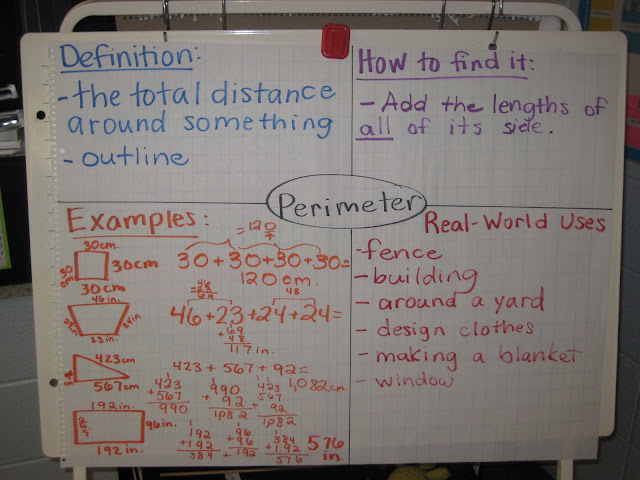 Definition:
-the total distance
around something
-outline
How to find it:
- Add the lengths of
all of its side.
Perimeter
Examples:
30cm.
30cm
30cm
30cm
= 120
30+30+30+30=
120 cm.
46 in.
24in
23in.
46
+23
69
48
46+23+24+24=
69
+48
117 in.
423cm
567cm
423 + 567 + 92=
1,082cm.
1
423
+567
990
990
+ 92
1082
423
567
+ 92
1082
192 in.
96in.
192in.
1
192
+192
384
1
96
+96
192
1
384
+192
576
576
in.
Real-World Uses
-fence
-building
- around a yard
- design clothes
- making a blanket
- window